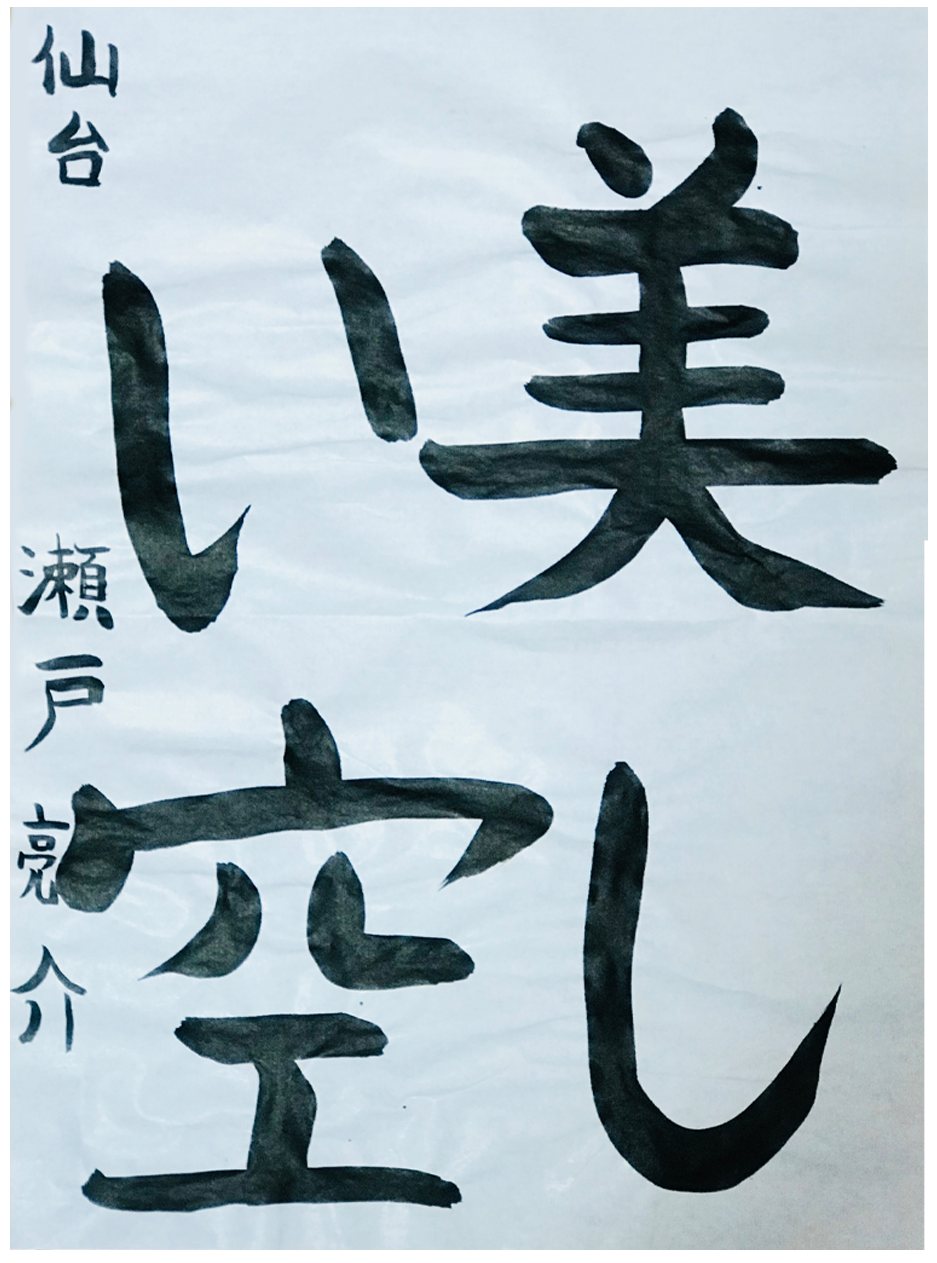 美し
い空
仙台 瀬戸亮介